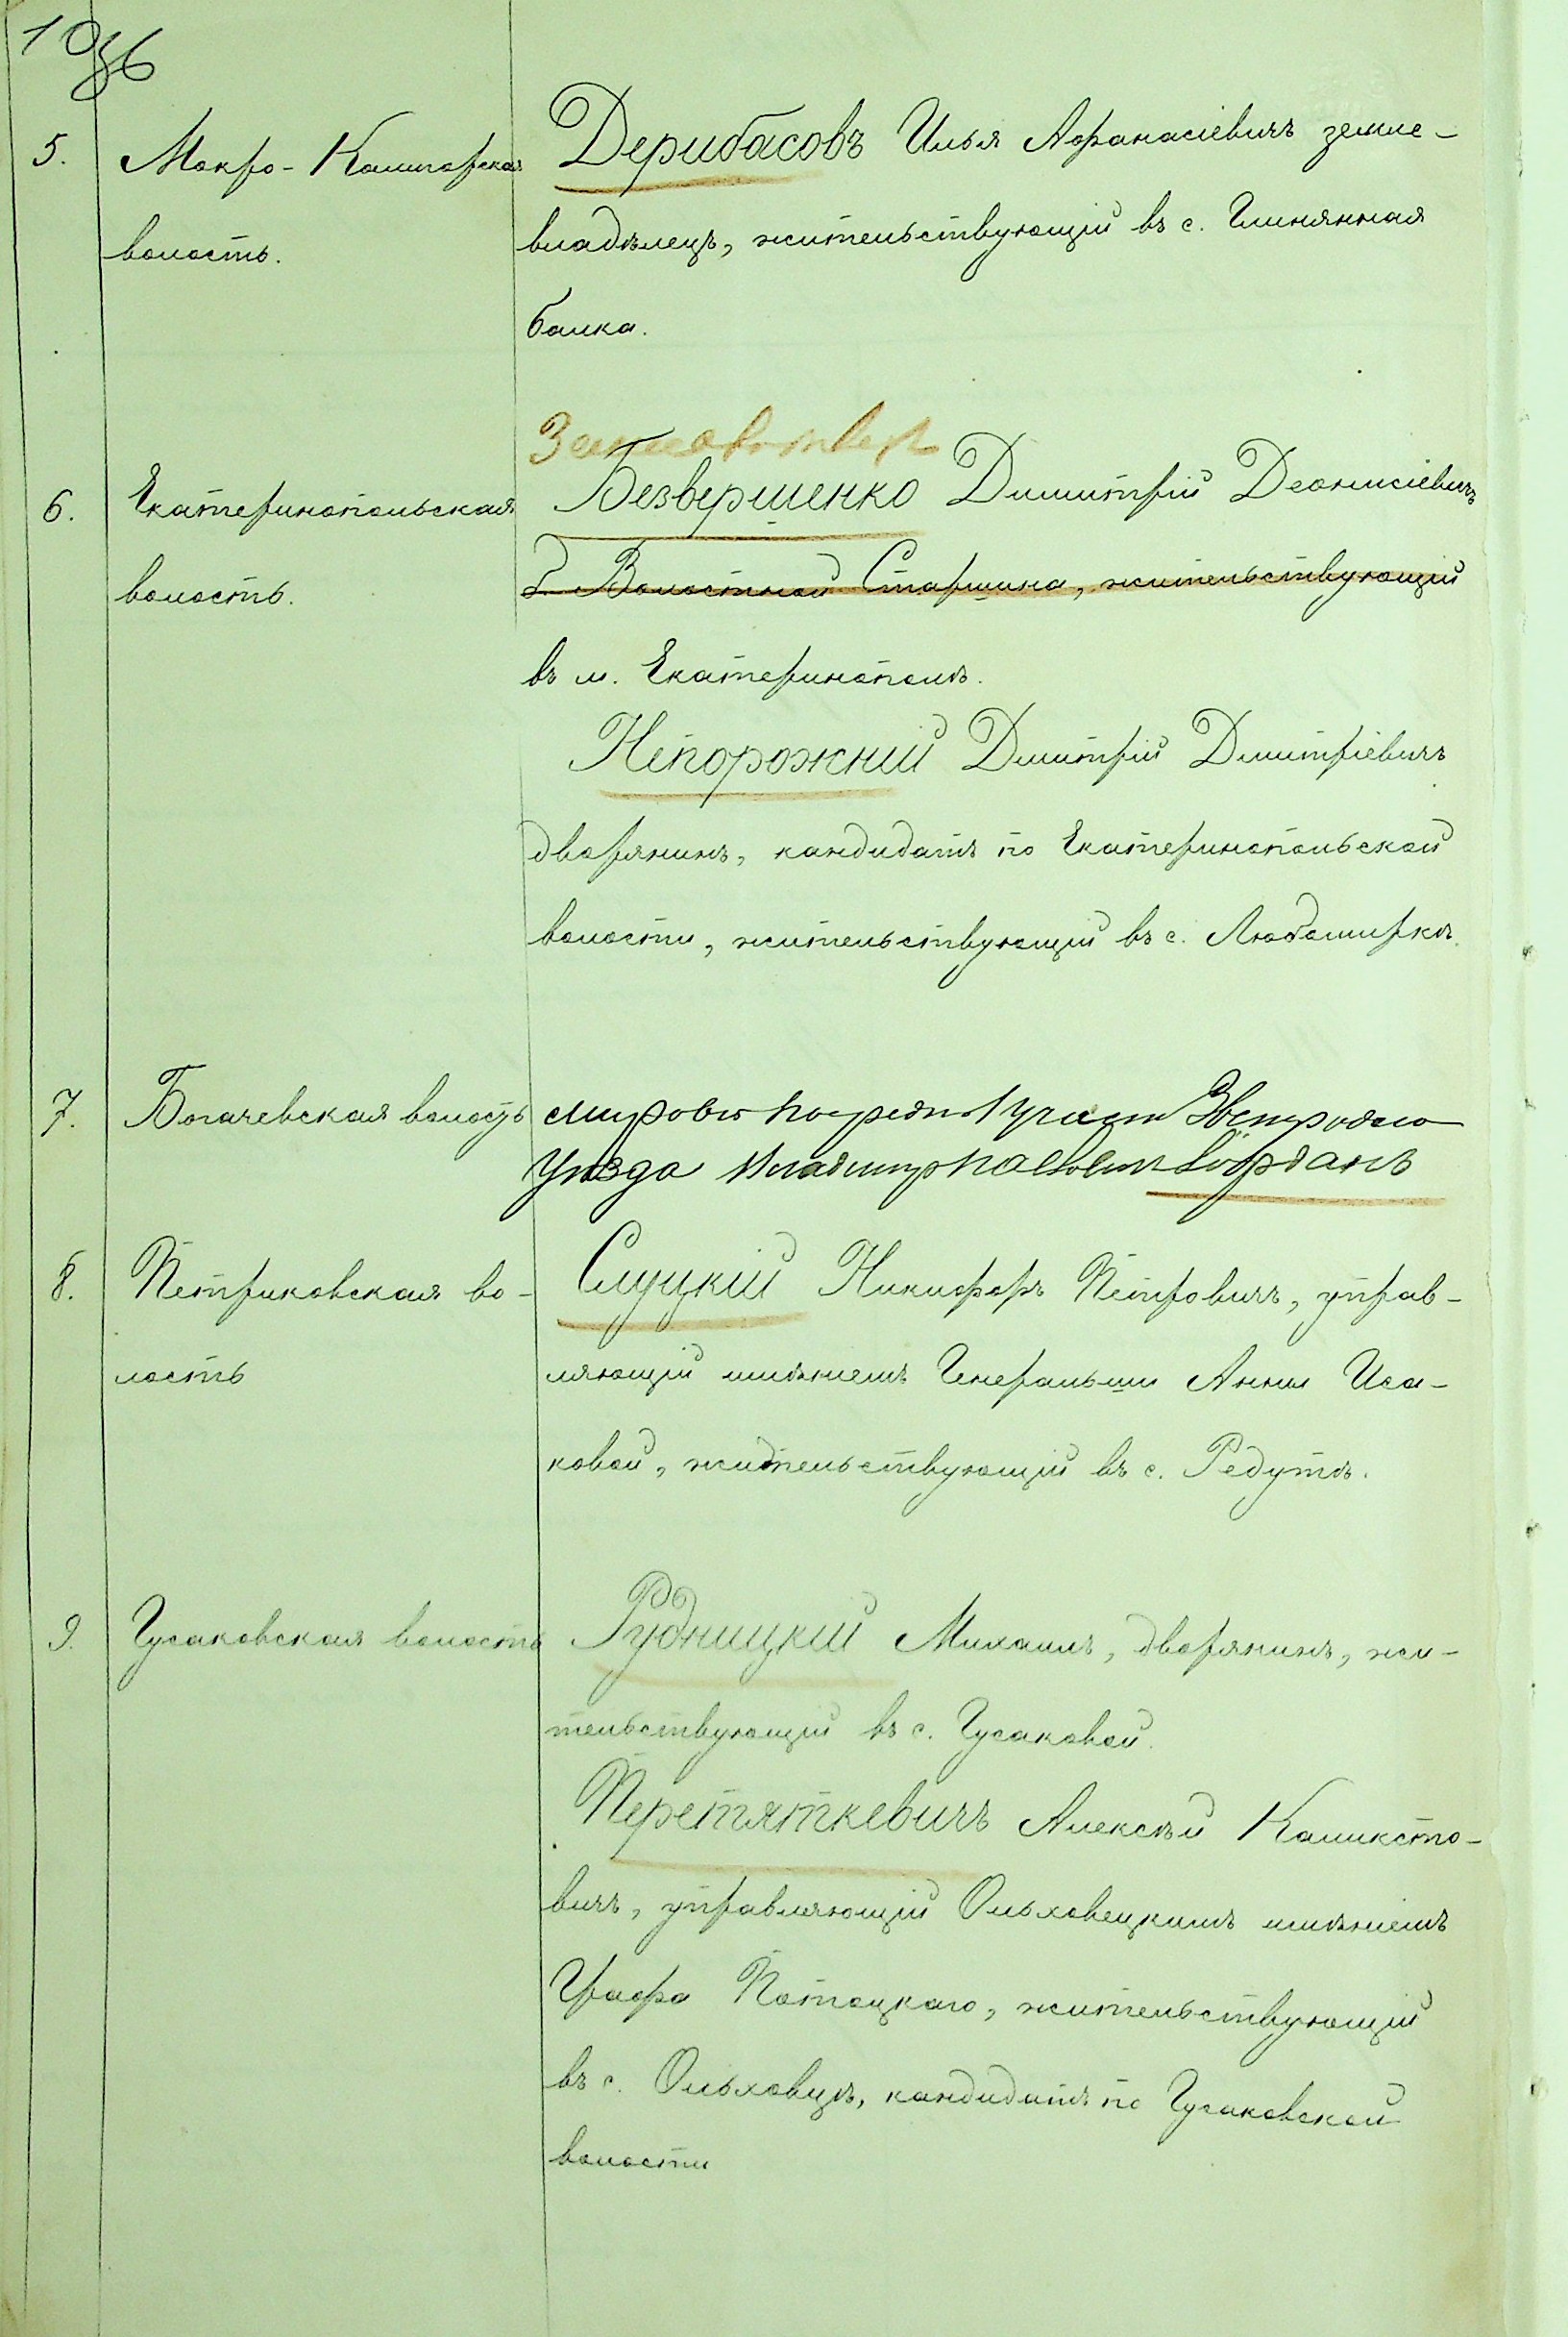 1096
5. Мокро-Калигорская Дерибасовъ Илья Афанасіевичъ земле-
волость. владѣлецъ, жительствующій въ с. Глинянная
балка.
6. Екатеринопольская Безвершенко Димитрій Деонисіевичъ
волость. б. Волостной Старшина, жительствующій
въ м. Екатеринополѣ.
Непорожній Дмитрій Дмитріевичъ
дворянинъ, кандидатъ по Екатеринопольской
волости, жительствующій въ с. Любомиркѣ.
7. Богачевская волость мировъ посредн 1 участ Звенгородского
уѣзда Владимир Павлович Іорданъ
8. Петриковская во- Слуцкій Никифоръ Петровичъ, управ-
лость ляющій имѣніемъ Генеральши Анны Иса-
ковой, жительствующій въ с. Редутѣ.
9. Гусаковская волость Рудницкій Михаилъ, дворянинъ, жи-
тельствующій въ с. Гусаковой.
Перетяткевичъ Алексѣй Каликсто-
вичъ, управляющій Ольховецкимъ имѣніемъ
Графа Потоцкаго, жительствующій
въ с. Ольховцѣ, кандидатъ по Гусаковской
волости